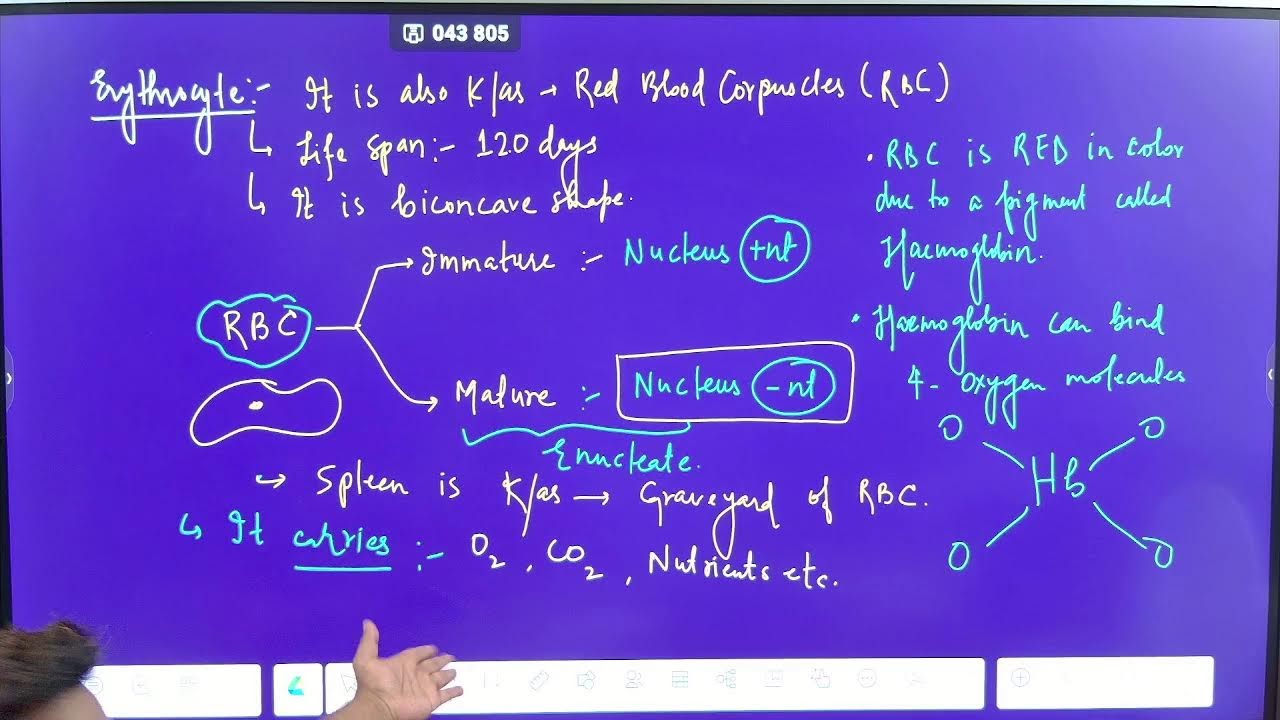 043 805
Erythrocyte:- It is also K/as → Red Blood Corpuscles (RBC)
↳ Life span:- 120 days
↳ It is biconcave shape.
RBC
Immature :- Nucleus +nt
Mature :- Nucleus -nt
Enucleate.
→ Spleen is K/as → Graveyard of RBC.
↳ It carries :- O2, CO2, Nutrients etc.
• RBC is RED in color
due to a pigment called
Haemoglobin.
• Haemoglobin can bind
4- Oxygen molecules
O O
Hb
O O